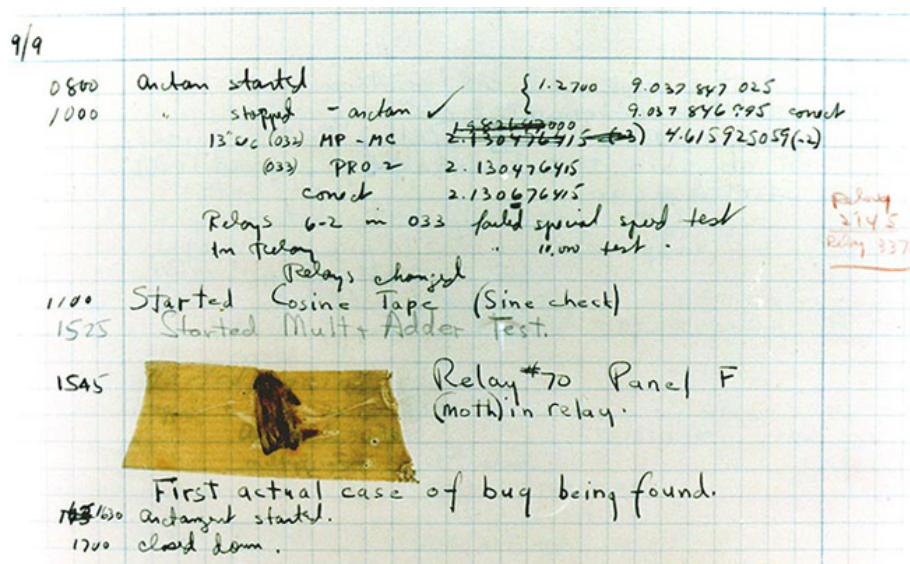 9/9
0800 Antan started { 1.2700 9.037 847 025
1000 " stopped - antan ✓ 9.037 846 795 conect
13"uc (032) MP - MC 2.130476415 (-3) 4.615925059(-2)
(033) PRO 2 2.130476415
conect 2.130676415
Relays 6-2 in 033 failed special speed test
In Relay " 10,000 test .
Relay
2145
Relay 337
Relays changed
1100 Started Cosine Tape (Sine check)
1525 Started Mult + Adder Test.
1545 Relay #70 Panel F
(moth) in relay.
First actual case of bug being found.
1630 Arctangent started.
1700 closed down.